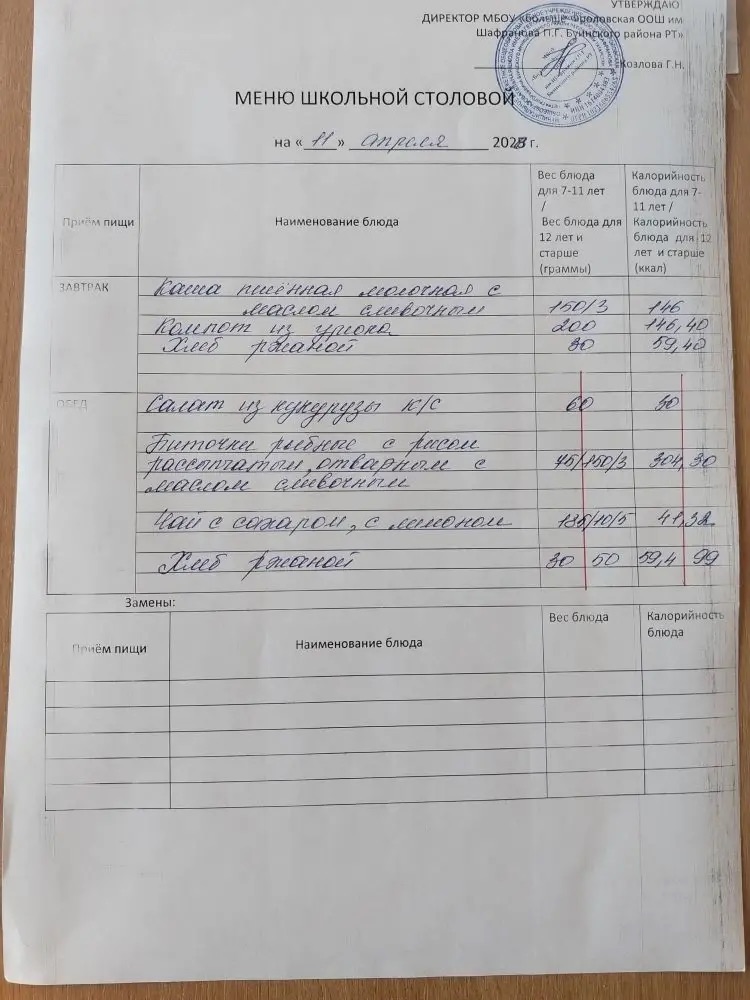 УТВЕРЖДАЮ
ДИРЕКТОР МБОУ «Больше-Фроловская ООШ им
Шафранова П.Г. Буинского района РТ»
Козлова Г.Н.
МЕНЮ ШКОЛЬНОЙ СТОЛОВОЙ
на « 11 » апреля 202 г.
Приём пищи
Наименование блюда
Вес блюда
для 7-11 лет
/
Вес блюда для
12 лет и
старше
(граммы)
Калорийность
блюда для 7-
11 лет /
Калорийность
блюда для 12
лет и старше
(ккал)
ЗАВТРАК
Каша пшённая молочная с
маслом сливочным 150/3 146
Компот из урюка 200 146,40
Хлеб ржаной 30 59,40
ОБЕД
Салат из кукурузы к/с 60 30
Биточки рыбные с рисом
рассыпчатым, отварным с 75/150/3 304,30
маслом сливочным
Чай с сахаром, с лимоном /10/5 41,32
Хлеб ржаной 30 50 59,4 99
Замены:
Приём пищи
Наименование блюда
Вес блюда
Калорийность
блюда